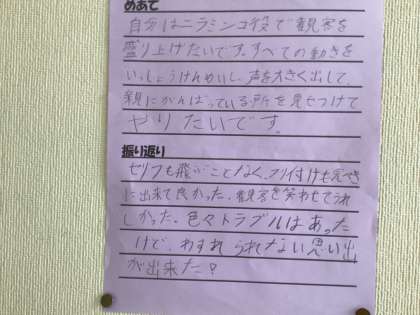 めあて
自分はニラミンコ役で観客を
盛り上げたいです。すべての動きを
いっしょうけんめいし、声を大きく出して、
親にがんばっている所を見せつけて
やりたいです。
振り返り
セリフも飛ぶことなく、フリ付けも完ぺき
に出来て良かった。観客を笑わせてうれ
しかった。色々トラブルはあった
けど、わすれられない思い出
が出来た?